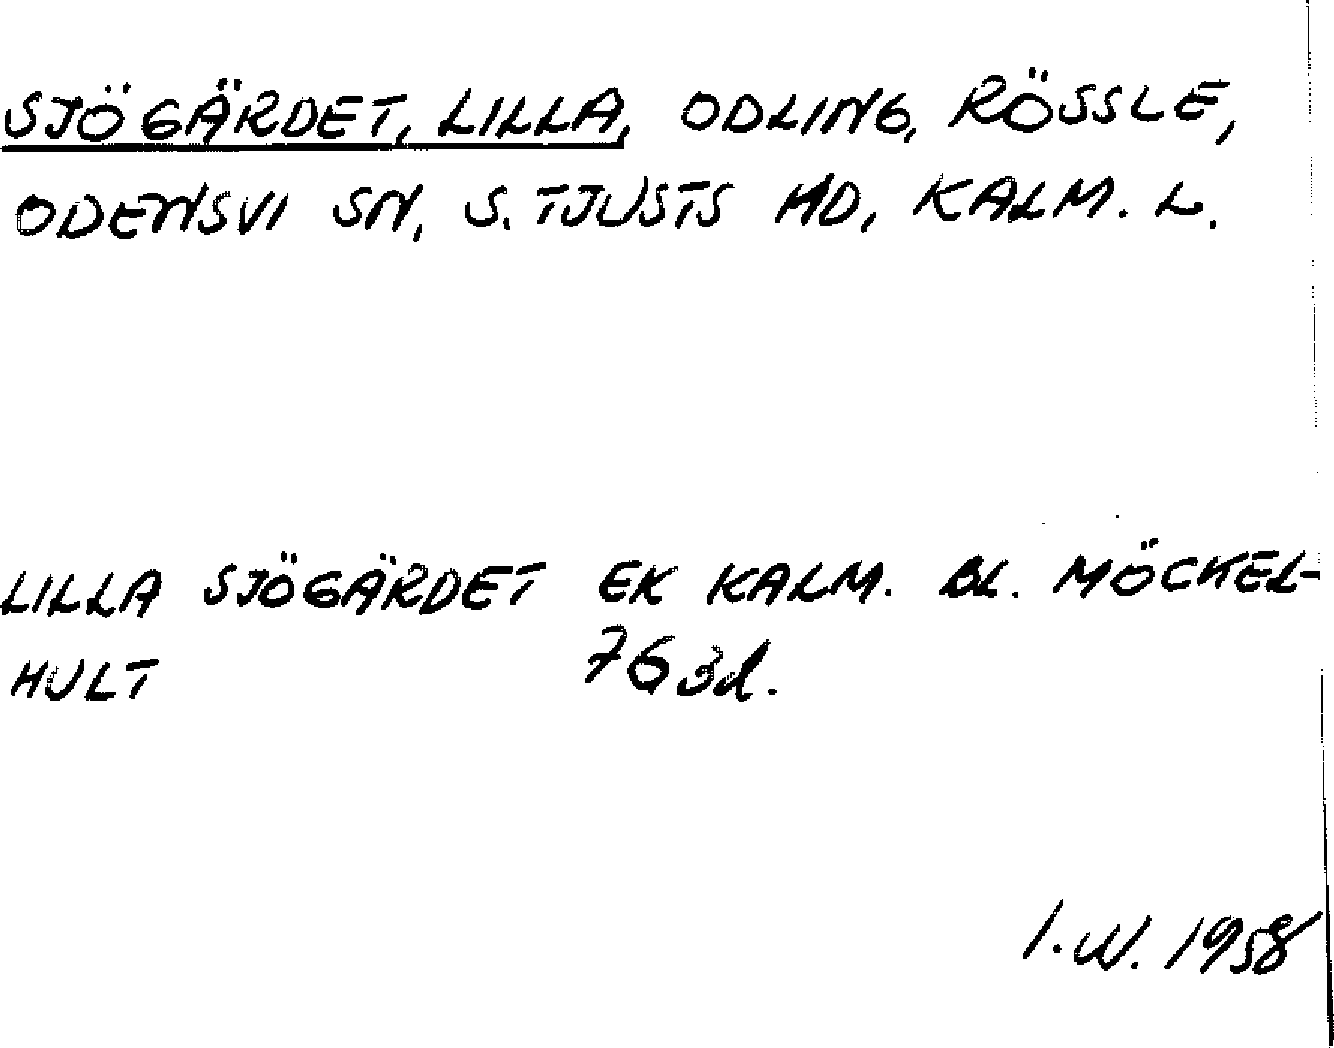 SJÖGÄRDET, LILLA, ODLING, RÖSSLE,
ODENSVI SN, S. TJUSTS HD, KALM. L.
LILLA SJÖGÄRDET EK KALM. BL. MÖCKEL-
HULT 763d.
I.W. 1958